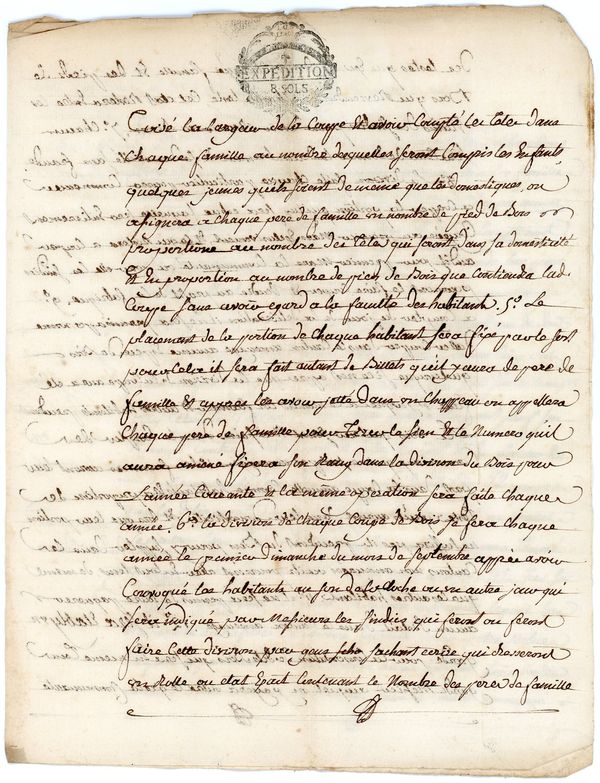 EXPEDITION
8 SOLS
la largeur de la Coupe et avoir Compté les Tetes dans
Chaque famille au nombre desquelles seront Compris les Enfants
quelques jeunes quils soient de meme que les domestiques, on
assignera a Chaque pere de famille un nombre de pied de Bois
proportioné au nombre des Tetes qui seront dans sa domesticité
Et En proportion au nombre de pieds de Bois que Contiendra lad.
Coupe sans avoir egard a la faculté des habitant. 5.° Le
placement de la portion de Chaque habitant sera fixé par le sort
pour Cela il sera fait autant de Billets qu'il y aura de pere de
famille & apprès les avoir jetté dans un Chappeau on appellera
Chaque pere de famille pour Tirer le sien Et le Numero qu'il
aura amené fixera son Rang dans la division du Bois pour
l'année Courante Et la meme operation sera faite Chaque
année 6.° la division de Chaque Coupe de Bois se fera Chaque
année le premier dimanche du mois de septembre apprès avoir
Convoqué les habitants au son de la Cloche ou un autre jour qui
sera indiqué par Messieurs les sindics qui feront ou feront
faire Cette division par gens sachant ecrire qui dresseront
un Rolle ou etat Exact Contenant le Nombre des peres de famille